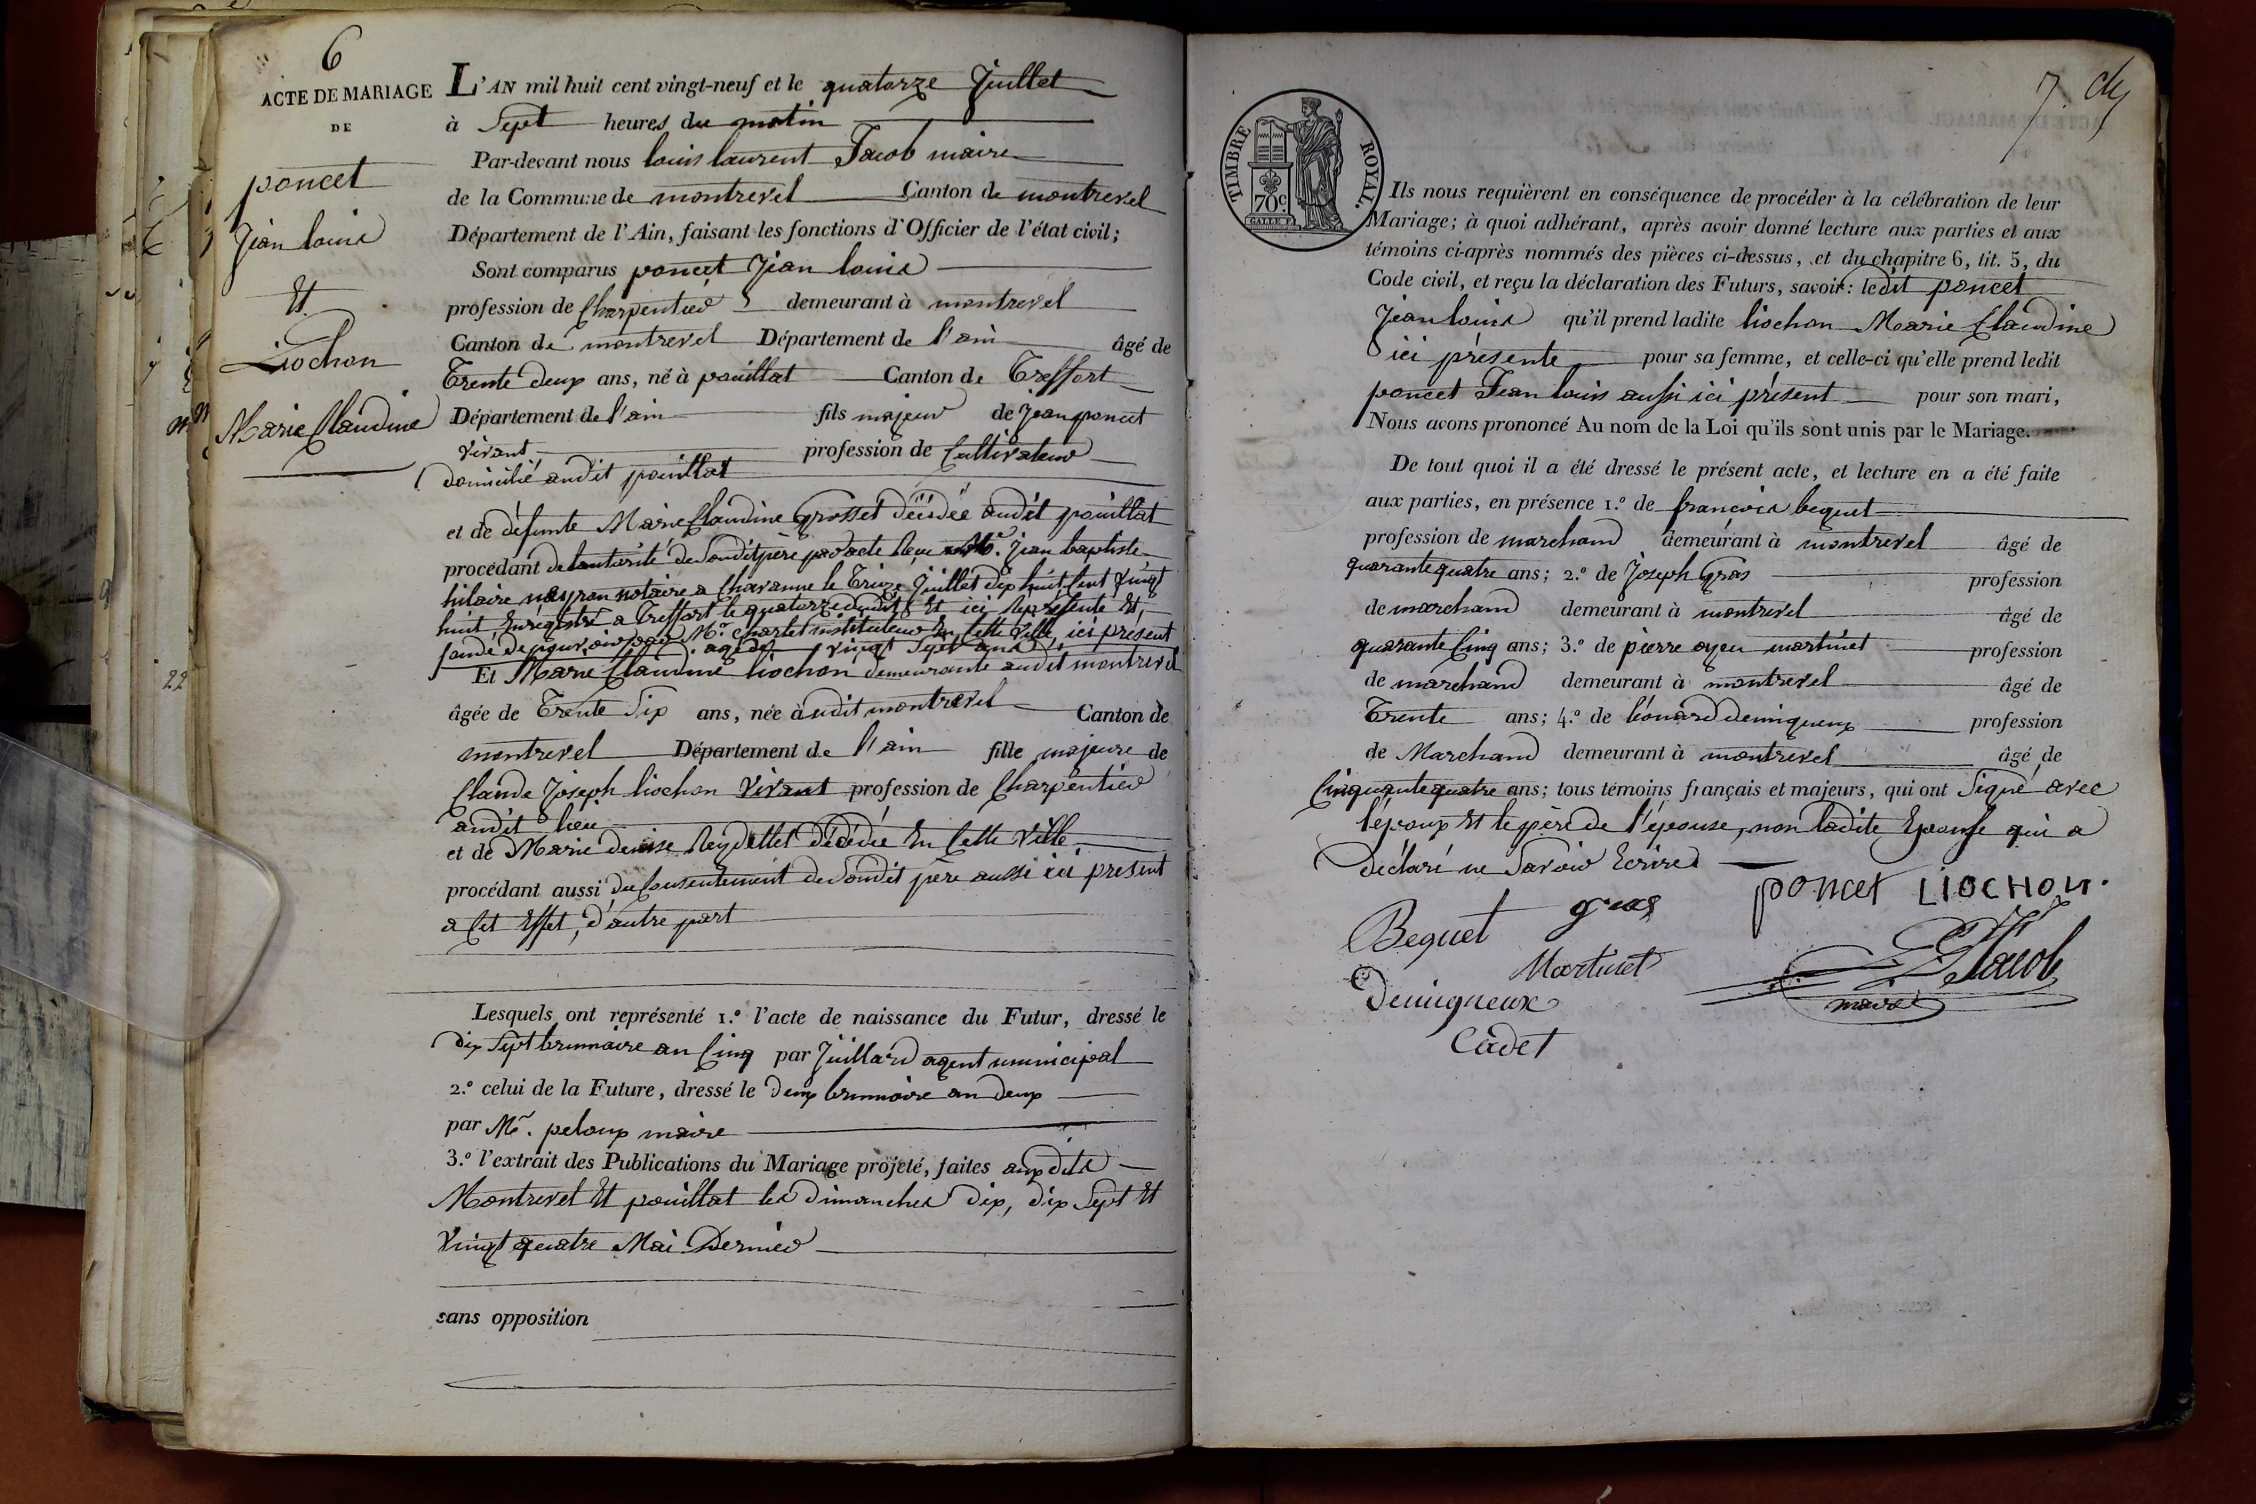 6
ACTE DE MARIAGE
DE
poncet
Jean louis
Et
Liochon
Marie Claudine
L'AN mil huit cent vingt-neuf et le quatorze Juillet
à Sept heures du matin
Par-devant nous louis laurent Jacob maire
de la Commune de montrevel Canton de montrevel
Département de l'Ain, faisant les fonctions d'Officier de l'état civil;
Sont comparus poncet Jean louis
profession de Charpentier demeurant à montrevel
Canton de montrevel Département de l'ain âgé de
Trente deux ans, né à pouillat Canton de Treffort
Département de l'ain fils majeur de Jean poncet
vivant profession de Cultivateur
domicilié audit pouillat
et de défunte Marie Claudine Grosset décédée audit pouillat
procédant de lautorité de Sondit père par acte Reçu Me. Jean baptiste
hilaire nayron notaire a Chavanne le Treize Juillet dix huit Cent vingt
huit Enregistré a Treffort le quatorze dudit Et ici Représenté Et,
fondé de pouvoir par Mr. charlet instituteur En Cette Ville, ici présent
agé de vingt Sept ans
Et Marie Claudine liochon demeurante audit montrevel
âgée de Trente Six ans, née àudit montrevel Canton de
montrevel Département de l'ain fille majeure de
Claude Joseph liochon vivant profession de Charpentier
audit lieu
et de Marie denise Reydellet décédée En Cette Ville
procédant aussi du Consentement de Sondit père aussi ici présent
a Cet Effet, d'autre part
Lesquels ont représenté 1.º l'acte de naissance du Futur, dressé le
dix Sept brumaire an Cinq par Juillard agent municipal
2.º celui de la Future, dressé le deux brumaire an deux
par Mr. peloux maire
3.º l'extrait des Publications du Mariage projeté, faites auxdits
Montrevel Et pouillat les dimanches dix, dix Sept Et
Vingt quatre Mai Dernier
sans opposition
22
7.
TIMBRE ROYAL.
70 C.
Ils nous requièrent en conséquence de procéder à la célébration de leur
Mariage; à quoi adhérant, après avoir donné lecture aux parties et aux
témoins ci-après nommés des pièces ci-dessus, et du chapitre 6, tit. 5, du
Code civil, et reçu la déclaration des Futurs, savoir: ledit poncet
Jean louis qu'il prend ladite liochon Marie Claudine
ici présente pour sa femme, et celle-ci qu'elle prend ledit
poncet Jean louis aussi ici présent pour son mari,
Nous avons prononcé Au nom de la Loi qu'ils sont unis par le Mariage.
De tout quoi il a été dressé le présent acte, et lecture en a été faite
aux parties, en présence 1.º de francois bequet
profession de marchand demeurant à montrevel âgé de
quarante quatre ans; 2.º de Joseph Gras profession
de marchand demeurant à montrevel âgé de
quarante Cinq ans; 3.º de pierre ayeu martinet profession
de marchand demeurant à montrevel âgé de
Trente ans; 4.º de léonard demigneux profession
de Marchand demeurant à montrevel âgé de
Cinquante quatre ans; tous témoins français et majeurs, qui ont Signé avec
l'époux Et le père de l'épouse, non ladite Epouse qui a
déclaré ne Savoir Ecrire
poncet LIOCHON.
Bequet gras
Martinet
Demigneux
Cadet
Jacob
maire